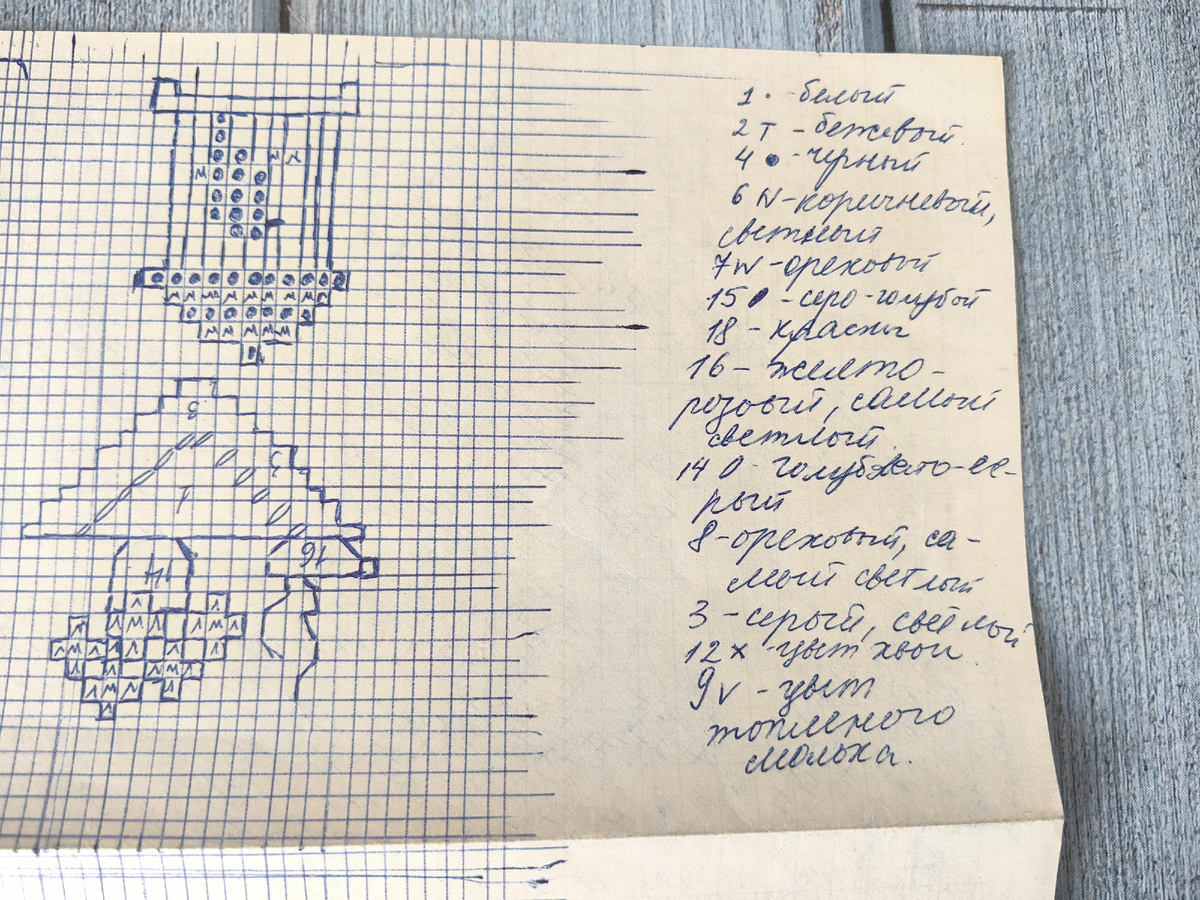 1 · - белый
2 т - бежевый.
4 ● - черный
6 И - коричневый,
светлый
7 И - ореховый
15 0 - серо-голубой
18 - красны
16 - желто-
розовый, самый
светлый.
14 0 - голубовато-се-
рый
8 - ореховый, са-
мый светлый
3 - серый, светлый
12 х - цвет хвои
9 v - цвет
топленого
молока.
3
3
1
14
16